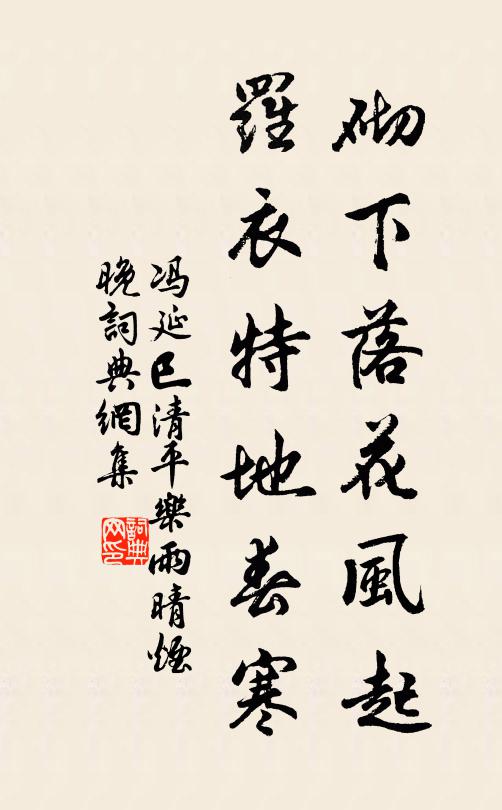 砌下落花風起
羅衣特地春寒
冯延巳清平樂雨晴煙
晚詞典網集
詞典网印